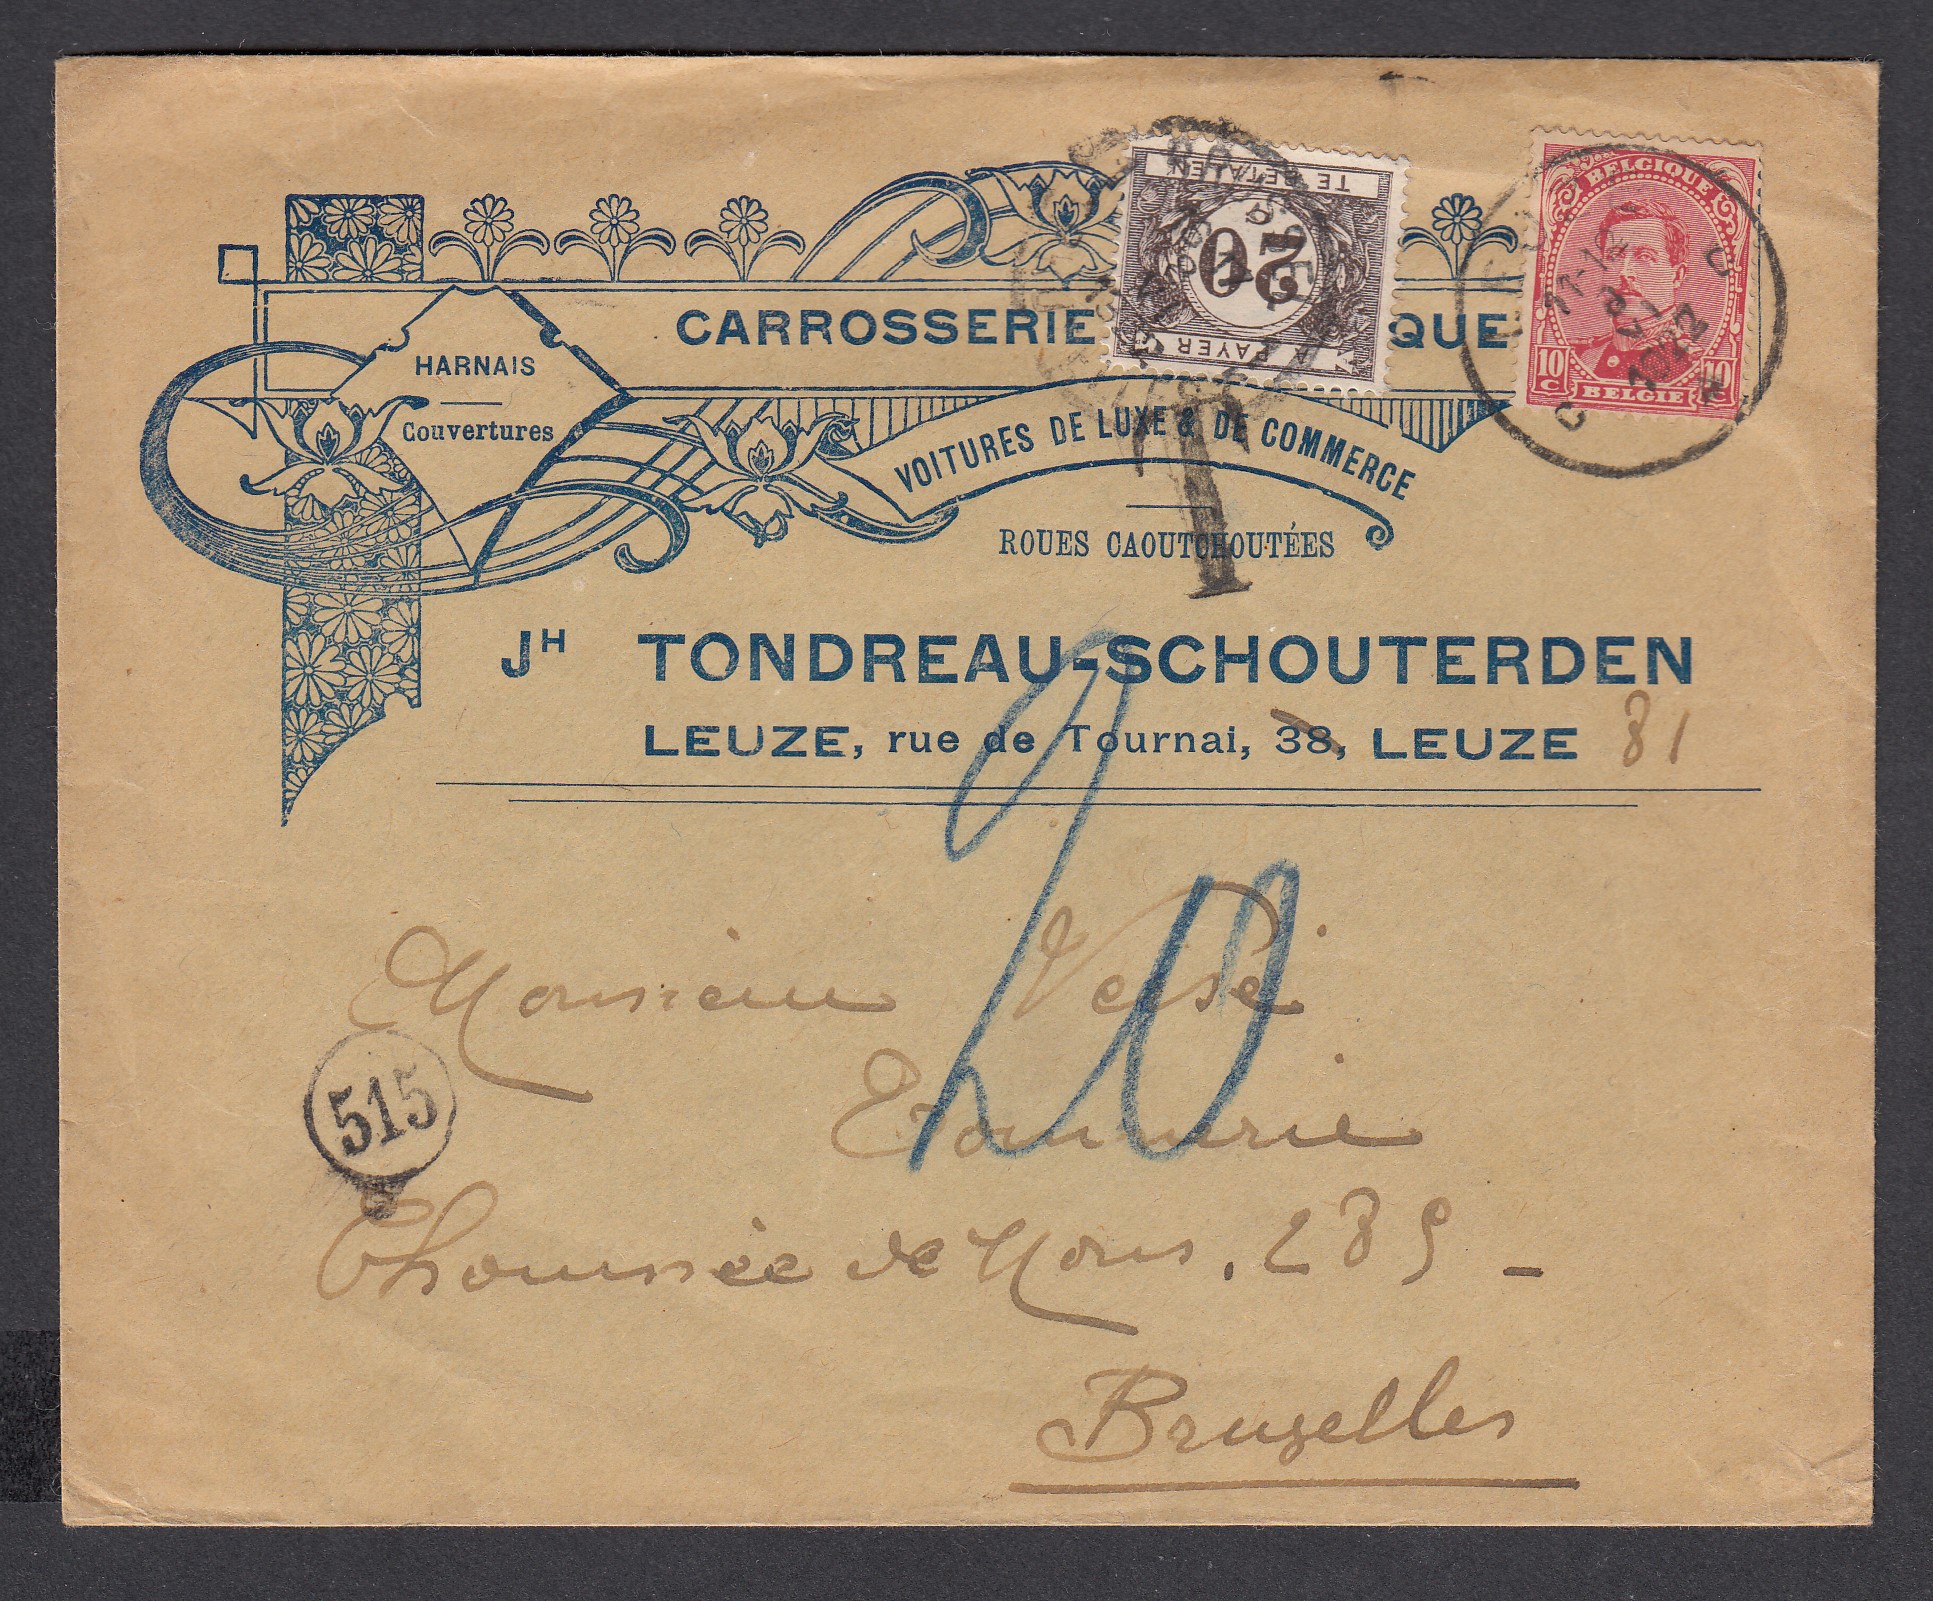 BELGIQUE
10 C
10 C
BELGIE
TE BETALEN
20
A PAYER
11-12
1922
CARROSSERIE QUE
HARNAIS
Couvertures
VOITURES DE LUXE & DE COMMERCE
T
ROUES CAOUTCHOUTÉES
JH TONDREAU-SCHOUTERDEN
LEUZE, rue de Tournai, 38, LEUZE 81
20
Monsieur
515
Chaussée de Mons. 289 -
Bruxelles